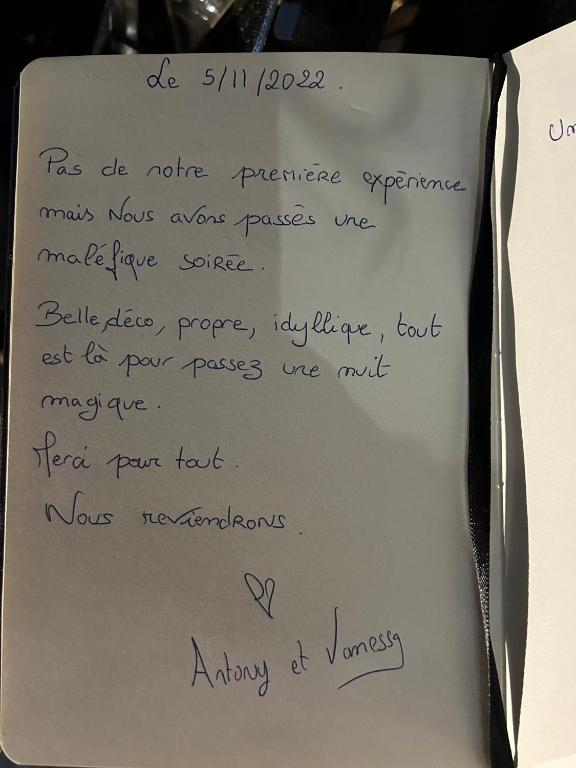 Le 5/11/2022.
Pas de notre première expérience
mais Nous avons passés une
maléfique soirée.
Belle, déco, propre, idyllique, tout
est là pour passez une nuit
magique.
Merci pour tout.
Nous reviendrons.
Antony et Vanessa
Un